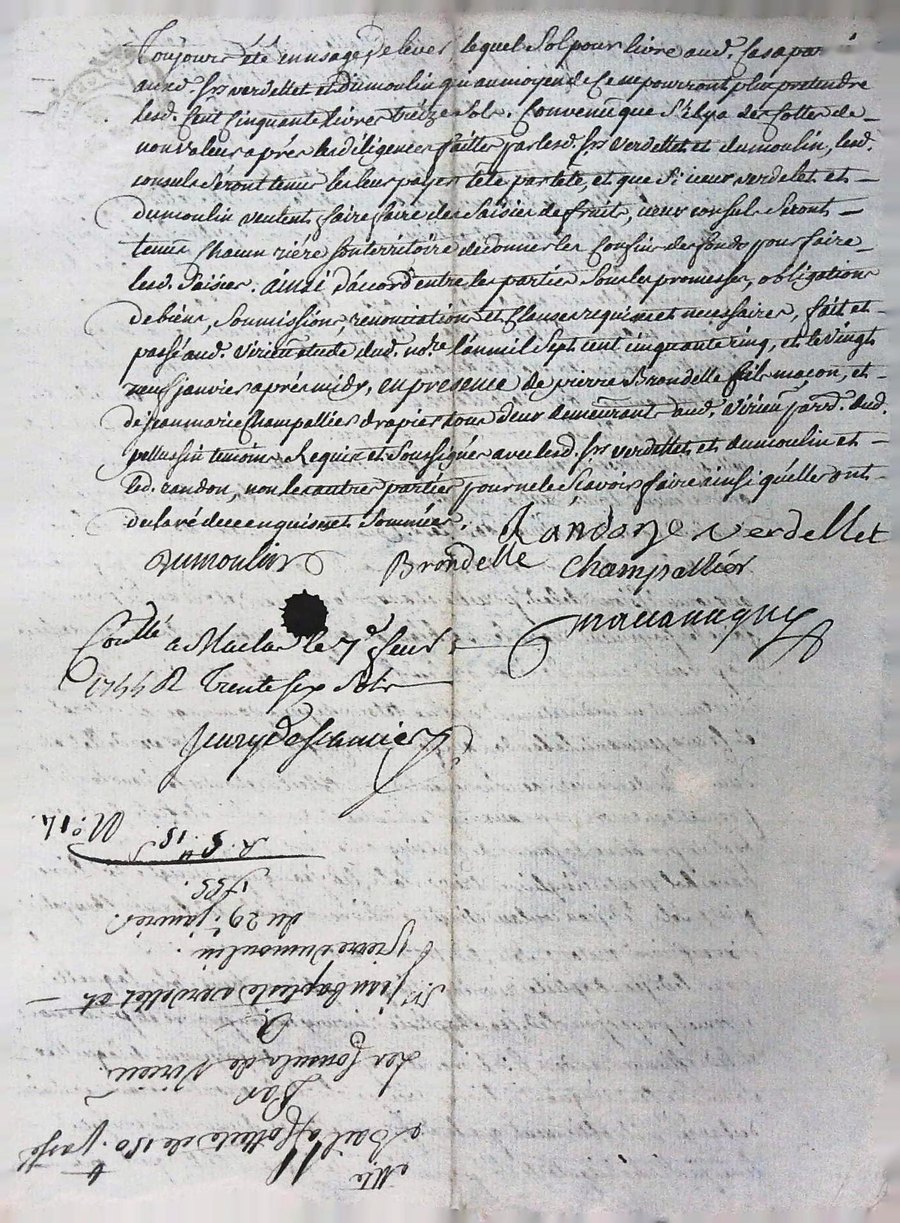 Toujours été en usage de lever lequel Sol pour livre aud. Cas apar
auxd. srs verdellet et Dumoulin qui au moyen de Ce ne pourront plus pretendre
lesd. Cent Cinquante livres treize Sols. Convenu que S'il y a des Cottes de
non valeur aprés les diligences faittes par lesd. srs verdellet et dumoulin, lesd.
consuls Seront tenus les leur payer tete par tete, et que Si iceux verdelet et
dumoulin veulent faire faire des Saisies de fruits, iceux consuls Seront
tenus Chacun riére Son territoire de donner les Confins des fonds pour faire
lesd. Saisies. ainsi d'accord entre les parties Sous les promesses, obligations
de biens, Soumissions, renonciations et Clauses requises et necessaires, fait et
passé aud. Virieu etude dud. nore. l'an mil Sept cent cinquante cinq, et le vingt
neuf janvier aprés midy, en presence de pierre Brondelle fils maçon, et
de jean marie Champallier drapier tous deux demeurants aud. Virieu parr. dud.
pellussin temoins Requis et Soussignés avec lesd. srs verdellet et dumoulin et
led. randon, non les autres parties pour ne le Scavoir faire ainsi qu'elles ont
declaré de ce enquises et Sommées. Randon Verdellet
Dumoulin Brondelle Champallier
Conllé a Maclas le 7e feur
R Trente six Sols
No. 14
R. 5# 15 s
1755.
du 29e. janvier
pierre dumoulin.
Sr. jean baptiste verdellet et
A
Les Consuls de Virieu
Par
Bail a Collecte de 150 # passé